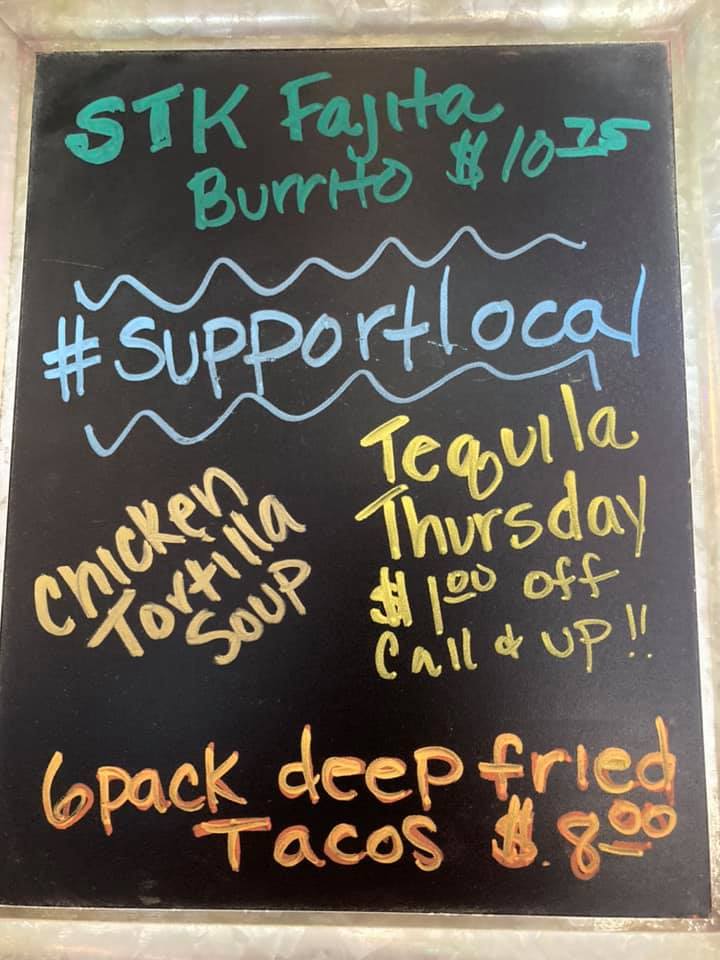 STK Fajita
Burrito $10.75
#supportlocal
Tequila
Thursday
$1.00 off
Call & up!!
Chicken
Tortilla
Soup
6pack deep fried
Tacos $.8.00